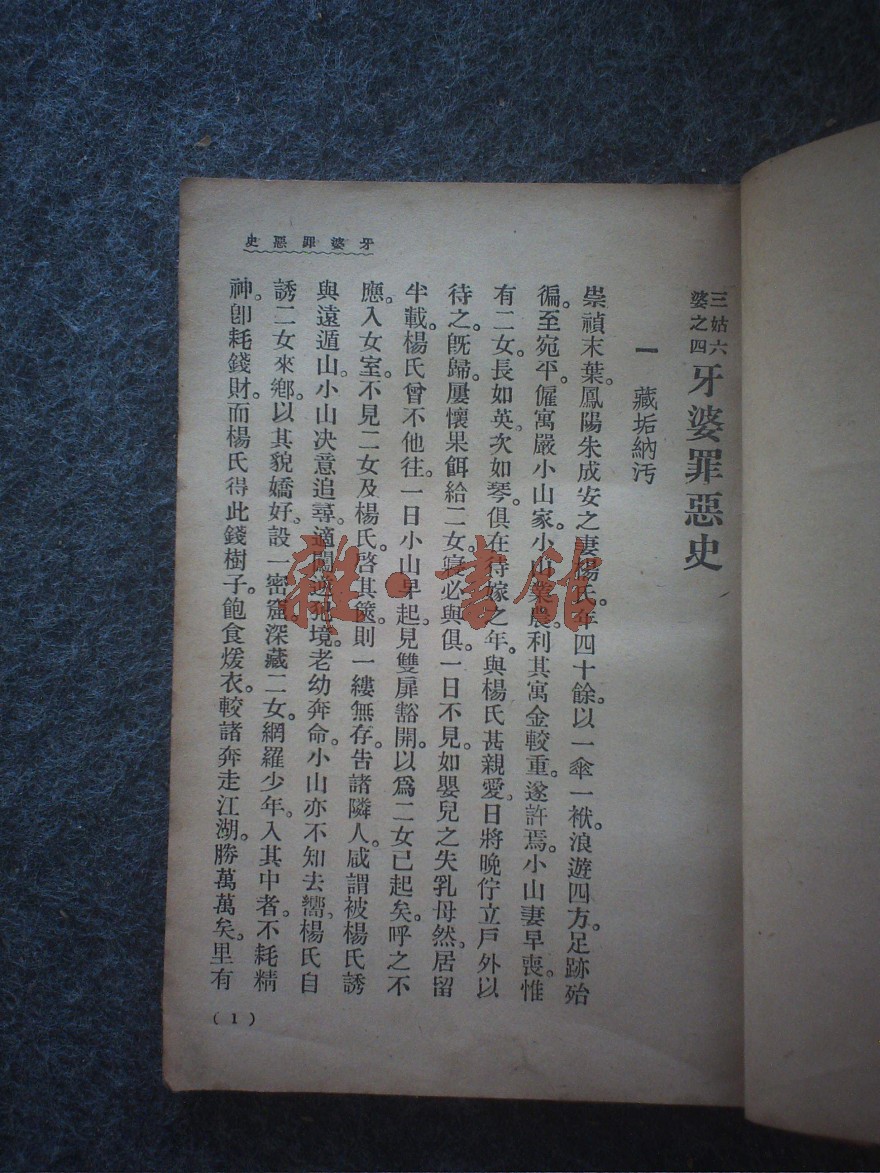 三姑六
婆之四
牙婆罪惡史
一 藏垢納污
崇禎末葉。鳳陽朱成安之妻楊氏。年四十餘。以一傘一袱。浪遊四方。足跡殆
徧。至宛平。僱寓嚴小山家。小山業農。利其寓金較重。遂許焉。小山妻早喪。惟
有二女。長如英。次如琴。俱在待嫁之年。與楊氏甚親愛。日將晚。佇立戶外以
待之。旣歸。屢懷果餌給二女。寢必與俱。一日不見。如嬰兒之失乳母然。居留
半載。楊氏曾不他往。一日小山早起。見雙扉豁開。以爲二女已起矣。呼之不
應。入女室。不見二女及楊氏。啓其篋。則一縷無存。告諸隣人。咸謂被楊氏誘
與遠遁。小山决意追尋。適闖逆犯境。老幼奔命。小山亦不知去嚮。楊氏自
誘二女來鄉。以其貌嬌好。設一密窟。深藏二女。網羅少年。入其中者。不耗精
神。卽耗錢財。而楊氏得此錢樹子。飽食煖衣。較諸奔走江湖。勝萬萬矣。里有
牙婆罪惡史
(1)
雜·書館